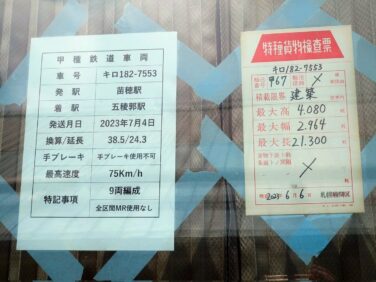 甲種鉄道車両
車号 キロ182-7553
発駅 苗穂駅
着駅 五稜郭駅
発送月日 2023年7月4日
換算/延長 38.5/24.3
手ブレーキ 手ブレーキ使用不可
最高速度 75Km/h
特記事項 9両編成
全区間MR使用なし
特種貨物検査票
キロ182-7553
967
積載限界 建築
最大高 4.080
最大幅 2.964
最大長 21.300
2023 6 6